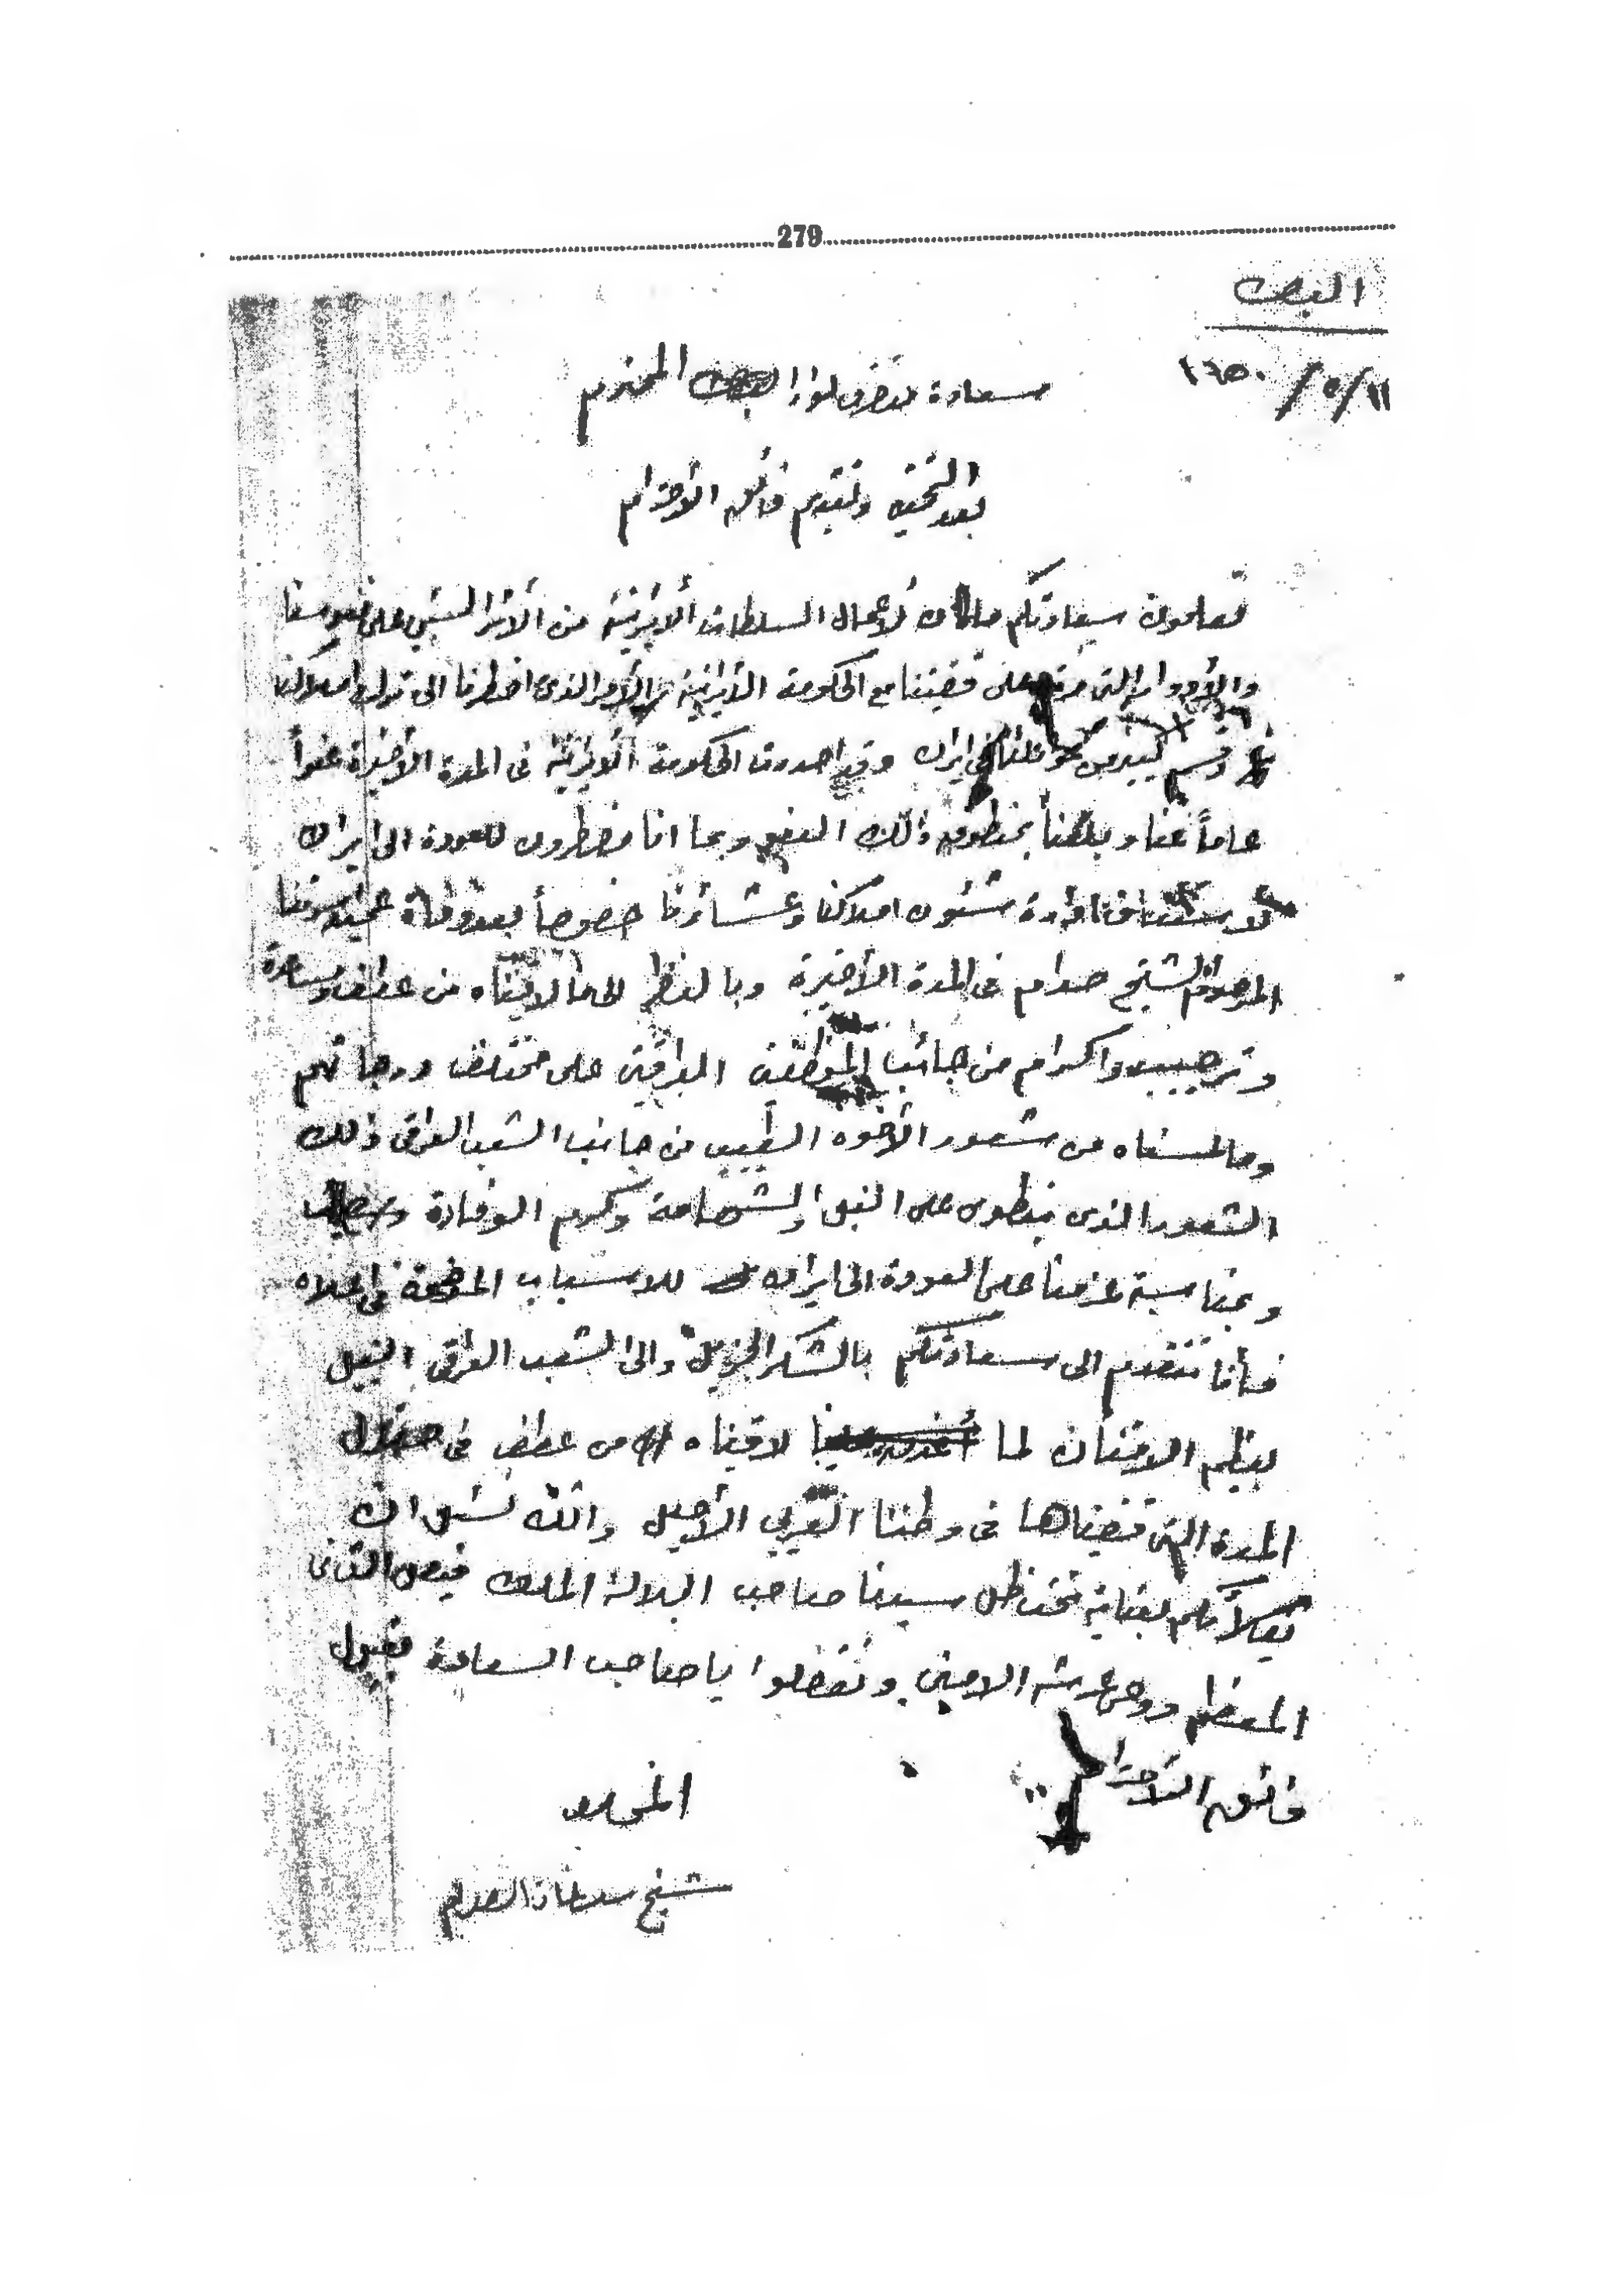 279
البصرة
١١/٥/١٩٥٠
سعادة متصرف لواء البصرة المحترم
بعد التحية وتقديم فائق الأحترام
تعلمون سعادتكم ما كان لأعمال السلطات الأيرانية من الأثر السيئ على نفوسنا
والأدوار التي مرت على قضيتنا مع الحكومة الأيرانية الأمر الذي اضطرنا الى ترك املاكنا
وقسم كبير من عوائلنا في ايران وقد اصدرت الحكومة الأيرانية في المدة الأخيرة عفواً
عاماً عنا وبلغنا بمنطوق ذلك العفو وبما انا مضطرون للعودة الى ايران
لأدارة شئون املاكنا وعشائرنا خصوصاً بعد وفاة عميد اسرتنا
المرحوم الشيخ صدام في المدة الأخيرة وبالنظر الى ما لاقيناه من عطف ومساعدة
وترحيب واكرام من جانب الموظفين العراقيين على مختلف درجاتهم
وما لمسناه من شعور الأخوه الطيب من جانب الشعب العراقي ذلك
الشعور الذي ينطوي على النبل والشهامة وكرم الوفادة
وبمناسبة عزمنا على العودة الى ايران للاسباب الموضحة في اعلاه
فأنا نتقدم الى سعادتكم بالشكر الجزيل والى الشعب العراقي النبيل
بعظيم الامتنان لما لاقيناه من عطف في خلال
المدة التي قضيناها في وطننا العربي الأصيل والله نسئل ان
يكلأكم بعنايته تحت ظل سيدنا صاحب الجلالة الملك فيصل الثاني
المعظم ووصي عرشه الامين وتفضلوا يا صاحب السعادة بقبول
فائق الأحترام
المخلص
شيخ سلطان الصدام